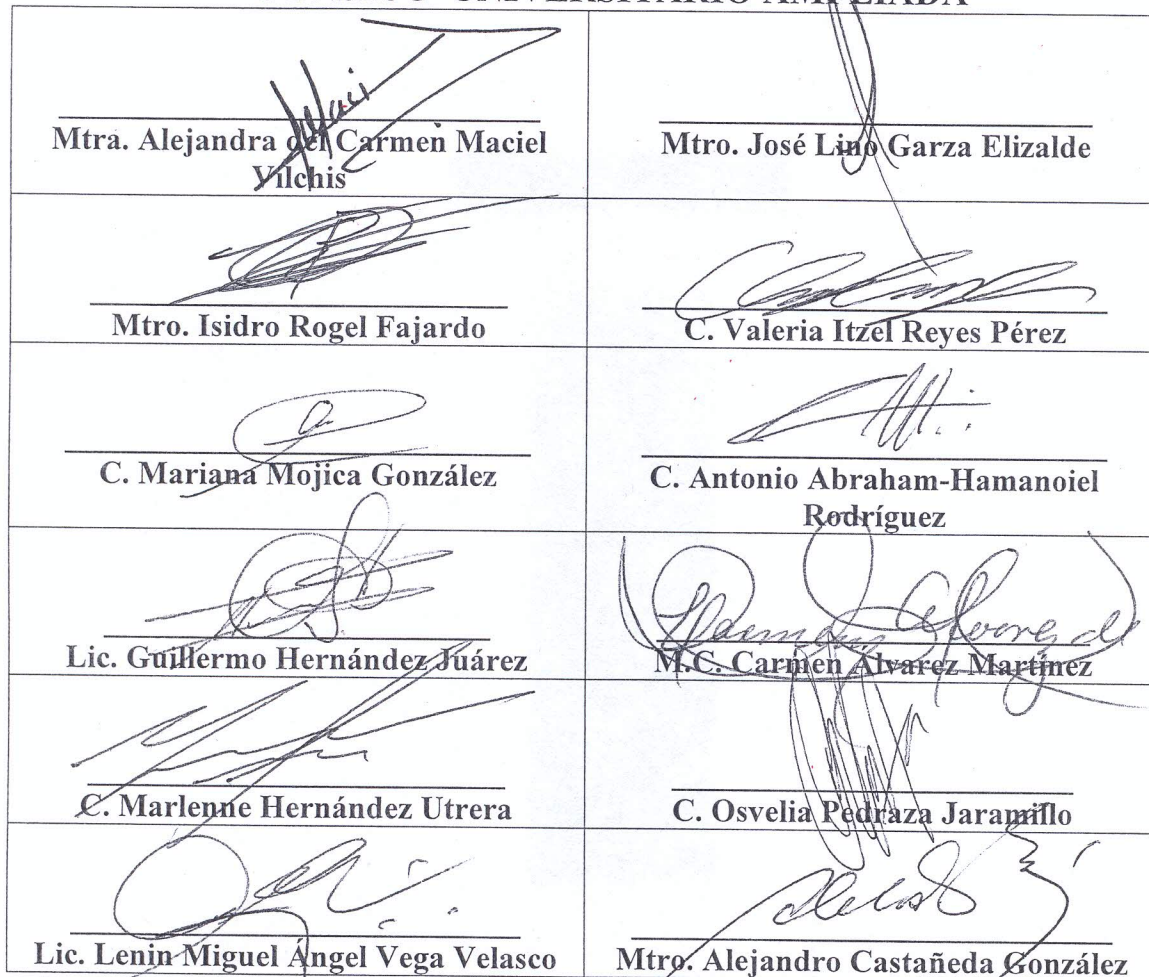 UNIVERSITARIO AMPLIADA
Mtra. Alejandra del Carmen Maciel
Vilchis
Mtro. José Lino Garza Elizalde
Mtro. Isidro Rogel Fajardo
C. Valeria Itzel Reyes Pérez
C. Mariana Mojica González
C. Antonio Abraham-Hamanoiel
Rodríguez
Lic. Guillermo Hernández Juárez
M.C. Carmen Álvarez Martínez
C. Marlenne Hernández Utrera
C. Osvelia Pedraza Jaramillo
Lic. Lenin Miguel Ángel Vega Velasco
Mtro. Alejandro Castañeda González